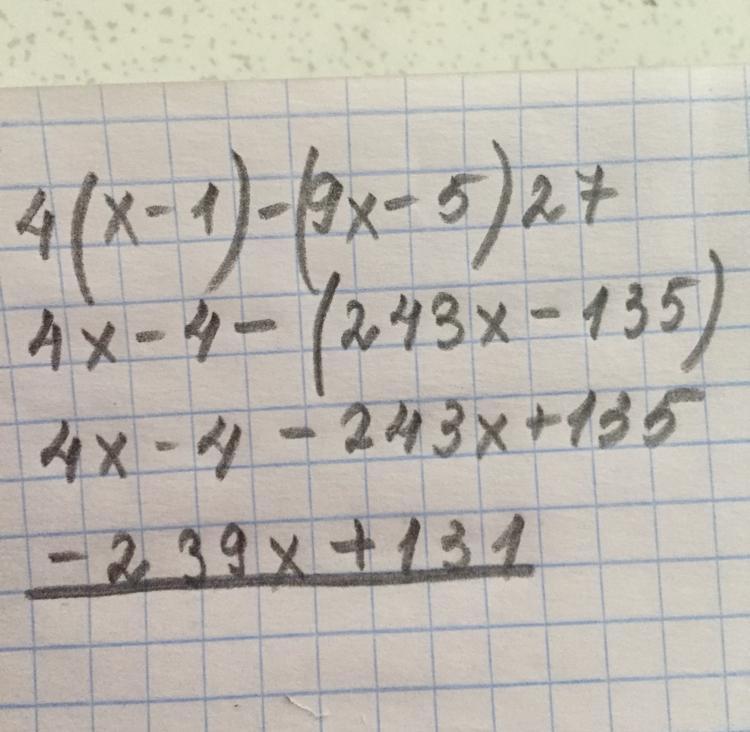 4(x-1)-(9x-5)27
4x-4-(243x-135)
4x-4-243x+135
-239x+131